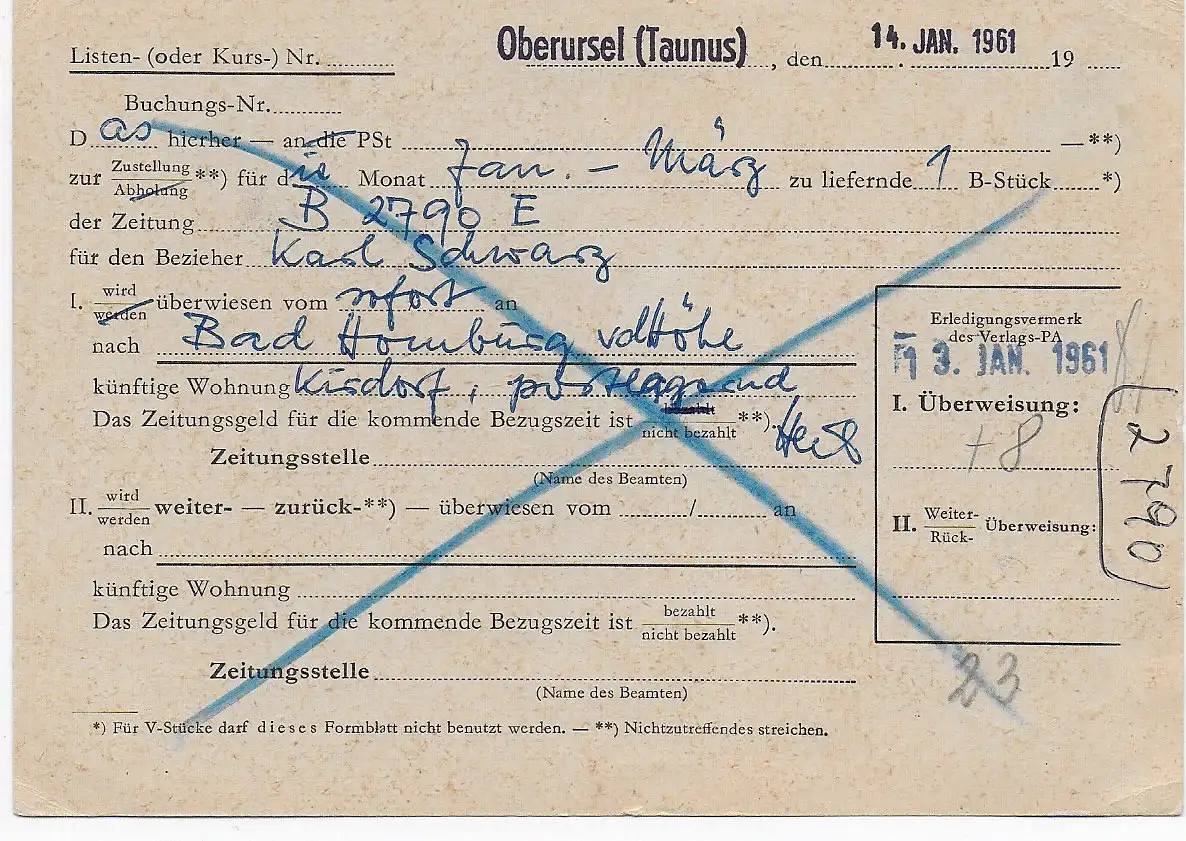 Listen- (oder Kurs-) Nr. Oberursel (Taunus), den 14. JAN. 1961 19
Buchungs-Nr.
Das hierher — an die PSt —**)
zur Zustellung Abholung **) für die Monat Jan. - März zu liefernde 1 B-Stück *)
der Zeitung B 2790 E
für den Bezieher Karl Schwarz
I. wird werden überwiesen vom sofort an
nach Bad Homburg vdHöhe
künftige Wohnung Kirdorf, postlagernd
Das Zeitungsgeld für die kommende Bezugszeit ist nicht bezahlt **).
Zeitungsstelle
(Name des Beamten)
II. wird werden weiter- — zurück-**) — überwiesen vom / an
nach
künftige Wohnung
Das Zeitungsgeld für die kommende Bezugszeit ist bezahlt nicht bezahlt **).
Zeitungsstelle
(Name des Beamten)
*) Für V-Stücke darf dieses Formblatt nicht benutzt werden. — **) Nichtzutreffendes streichen.
Erledigungsvermerk
des Verlags-PA
1 3. JAN. 1961
I. Überweisung:
+8
II. Weiter- Rück- Überweisung:
2790
23